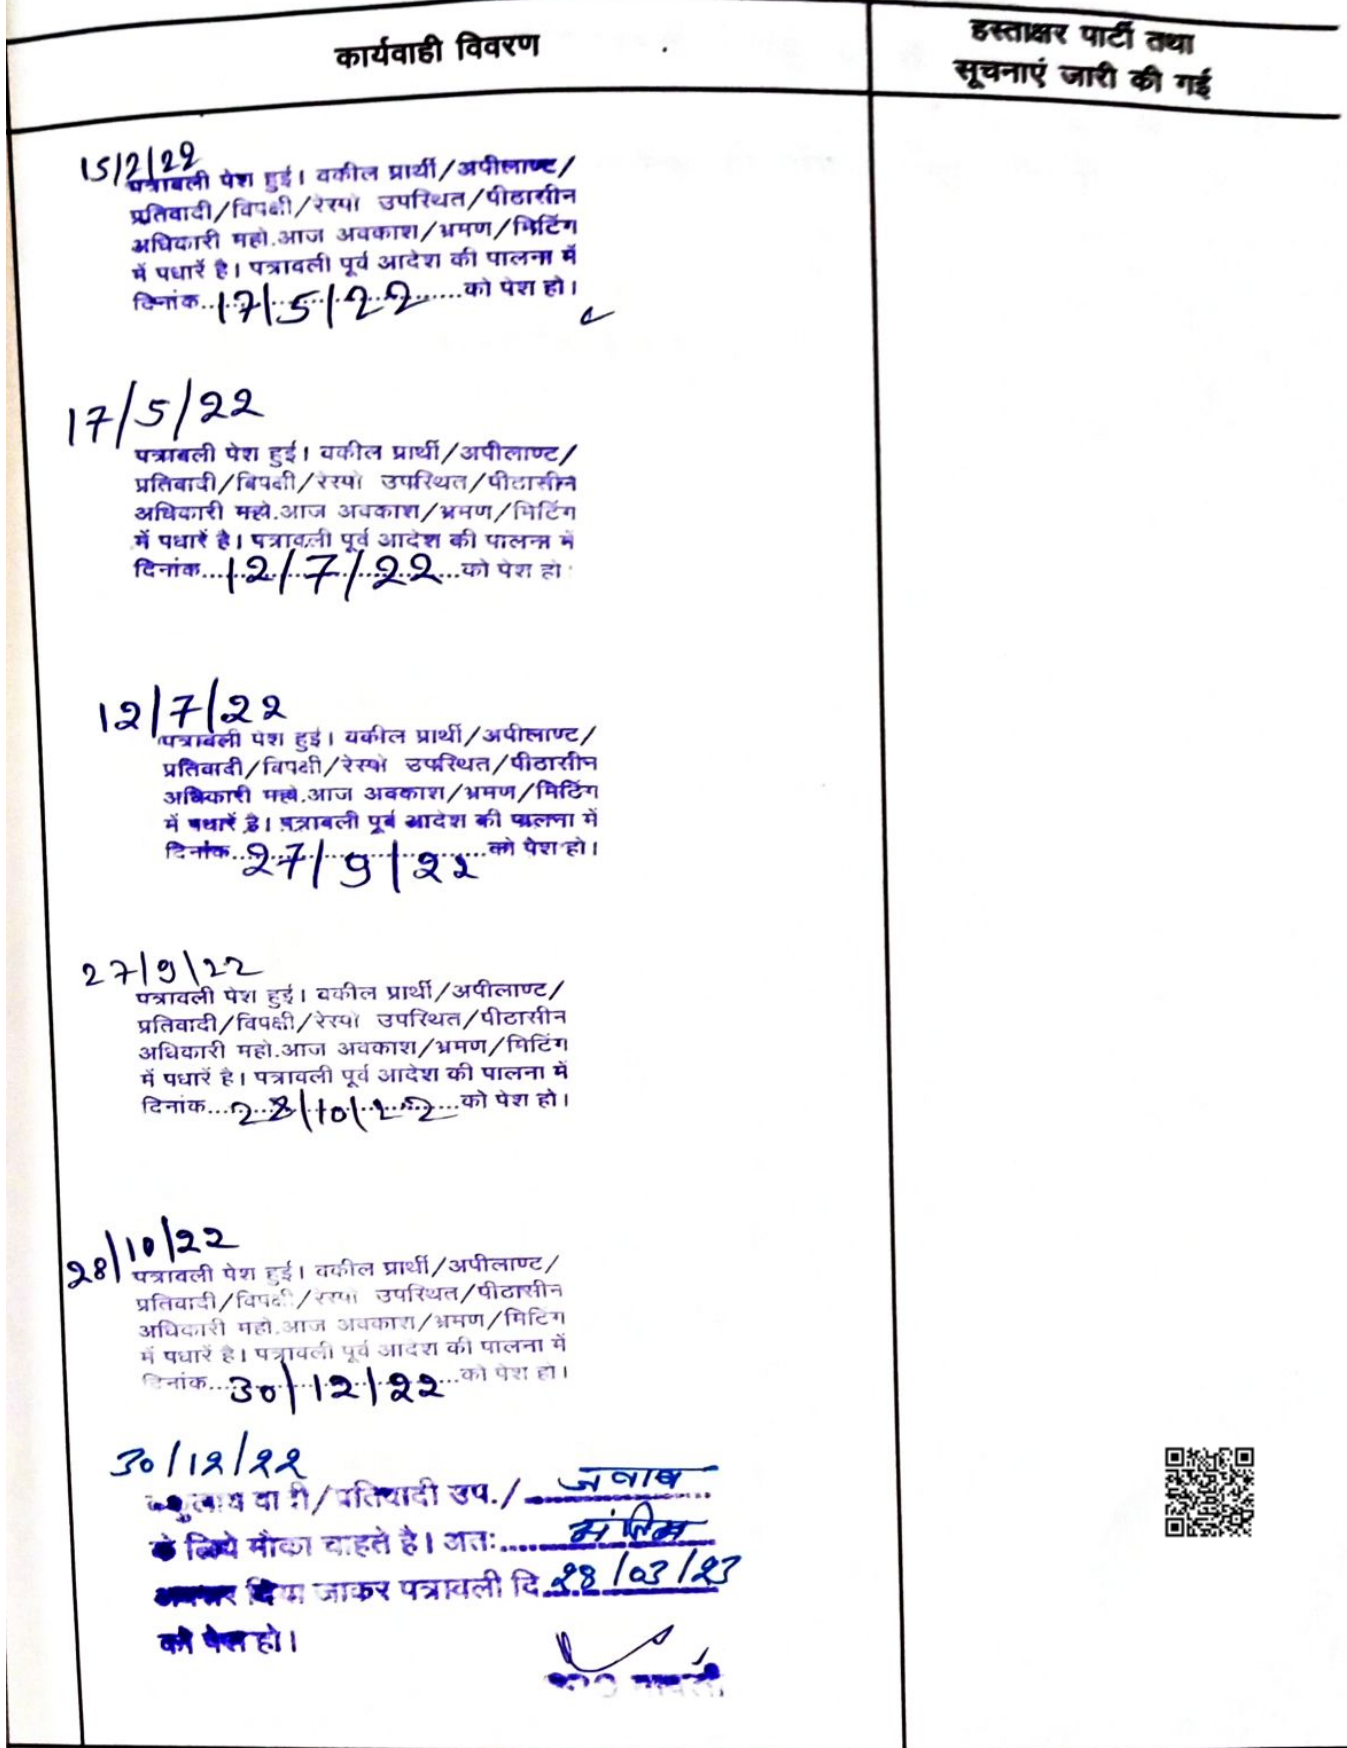 कार्यवाही विवरण
हस्ताक्षर पार्टी तथा
सूचनाएं जारी की गई
15/2/22
पत्रावली पेश हुई। वकील प्रार्थी/अपीलाण्ट/
प्रतिवादी/विपक्षी/रेस्पो उपस्थित/पीठासीन
अधिकारी महो.आज अवकाश/भ्रमण/मिटिंग
में पधारें है। पत्रावली पूर्व आदेश की पालना में
दिनांक..17/5/22......को पेश हो।
17/5/22
पत्रावली पेश हुई। वकील प्रार्थी/अपीलाण्ट/
प्रतिवादी/विपक्षी/रेस्पो उपस्थित/पीठासीन
अधिकारी महो.आज अवकाश/भ्रमण/मिटिंग
में पधारें है। पत्रावली पूर्व आदेश की पालना में
दिनांक...12/7/22...को पेश हो
12/7/22
पत्रावली पेश हुई। वकील प्रार्थी/अपीलाण्ट/
प्रतिवादी/विपक्षी/रेस्पो उपस्थित/पीठासीन
अधिकारी महो.आज अवकाश/भ्रमण/मिटिंग
में पधारें है। पत्रावली पूर्व आदेश की पालना में
दिनांक...27/9/22...को पेश हो।
27/9/22
पत्रावली पेश हुई। वकील प्रार्थी/अपीलाण्ट/
प्रतिवादी/विपक्षी/रेस्पो उपस्थित/पीठासीन
अधिकारी महो.आज अवकाश/भ्रमण/मिटिंग
में पधारें है। पत्रावली पूर्व आदेश की पालना में
दिनांक...28/10/22...को पेश हो।
28/10/22
पत्रावली पेश हुई। वकील प्रार्थी/अपीलाण्ट/
प्रतिवादी/विपक्षी/रेस्पो उपस्थित/पीठासीन
अधिकारी महो.आज अवकाश/भ्रमण/मिटिंग
में पधारें है। पत्रावली पूर्व आदेश की पालना में
दिनांक...30/12/22...को पेश हो।
30/12/22
वादी/प्रतिवादी उप./ जवाब
के लिये मौका चाहते है। अतः...... अंतिम
अवसर दिया जाकर पत्रावली दि. 28/03/23
को पेश हो।